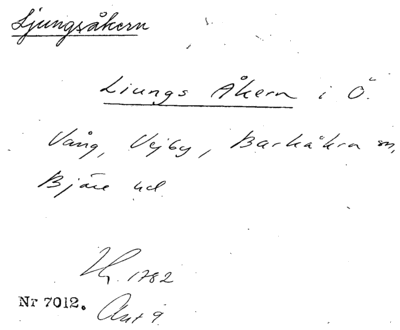 Ljungsåkern
Liungs Åkern i Ö.
Vång, Vejby, Barkåkra sn,
Bjäre hd
1782
Nr 7012. Akt 9